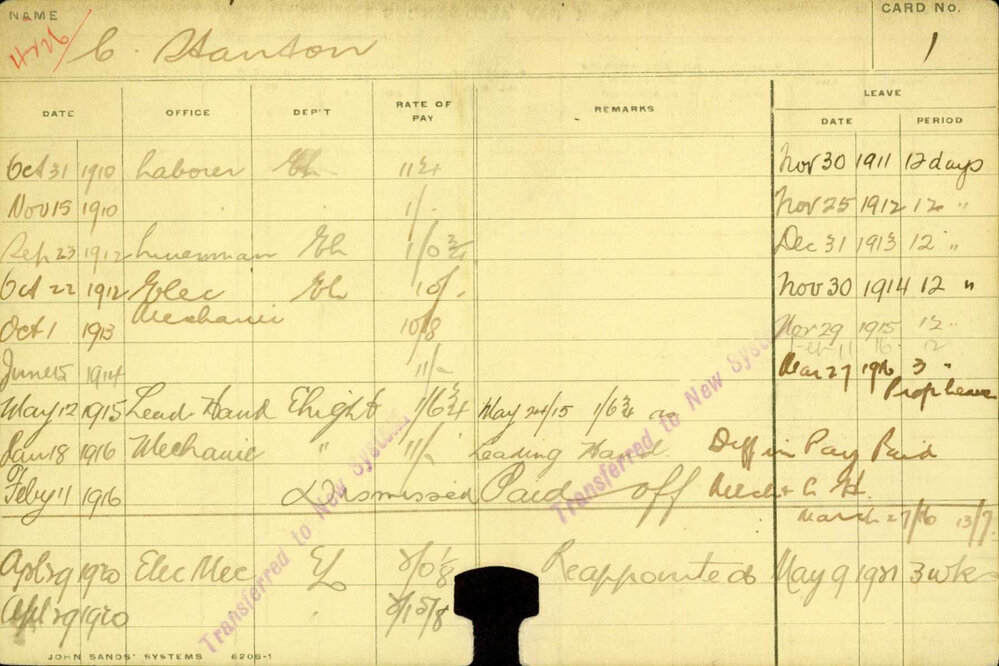 NAME
CARD No.
C. Stanton
1
LEAVE
DATE OFFICE DEP'T RATE OF PAY REMARKS DATE PERIOD
Oct 31 1910 Laborer Nov 30 1911 12 days
Nov 15 1910 1/- Nov 25 1912 12 "
Sep 23 1912 Linesman 1/0 3/4 Dec 31 1913 12 "
Oct 22 1912 Elec 10/- Nov 30 1914 12 "
Mechanic
Oct 1 1913 10/8 Nov 29 1915 12 "
Feb 11 16 12
June 15 1914 11/- Mar 27 1916 3 "
Prop leave
May 12 1915 Lead Hand Elight 1/6 3/4 May 24/15 1/6 3/4 as
Jan 18 1916 Mechanic " 11/- Leading Hand. Diff in Pay Paid
Feby 11 1916 Dismissed Paid off
March 27/16 13/7
Apl 29 1920 Elec Mec EL Reappointed May 9 1921 3 wks
Apl 29 1920
Transferred to New System
Transferred to New System
JOHN SANDS' SYSTEMS 6206-1